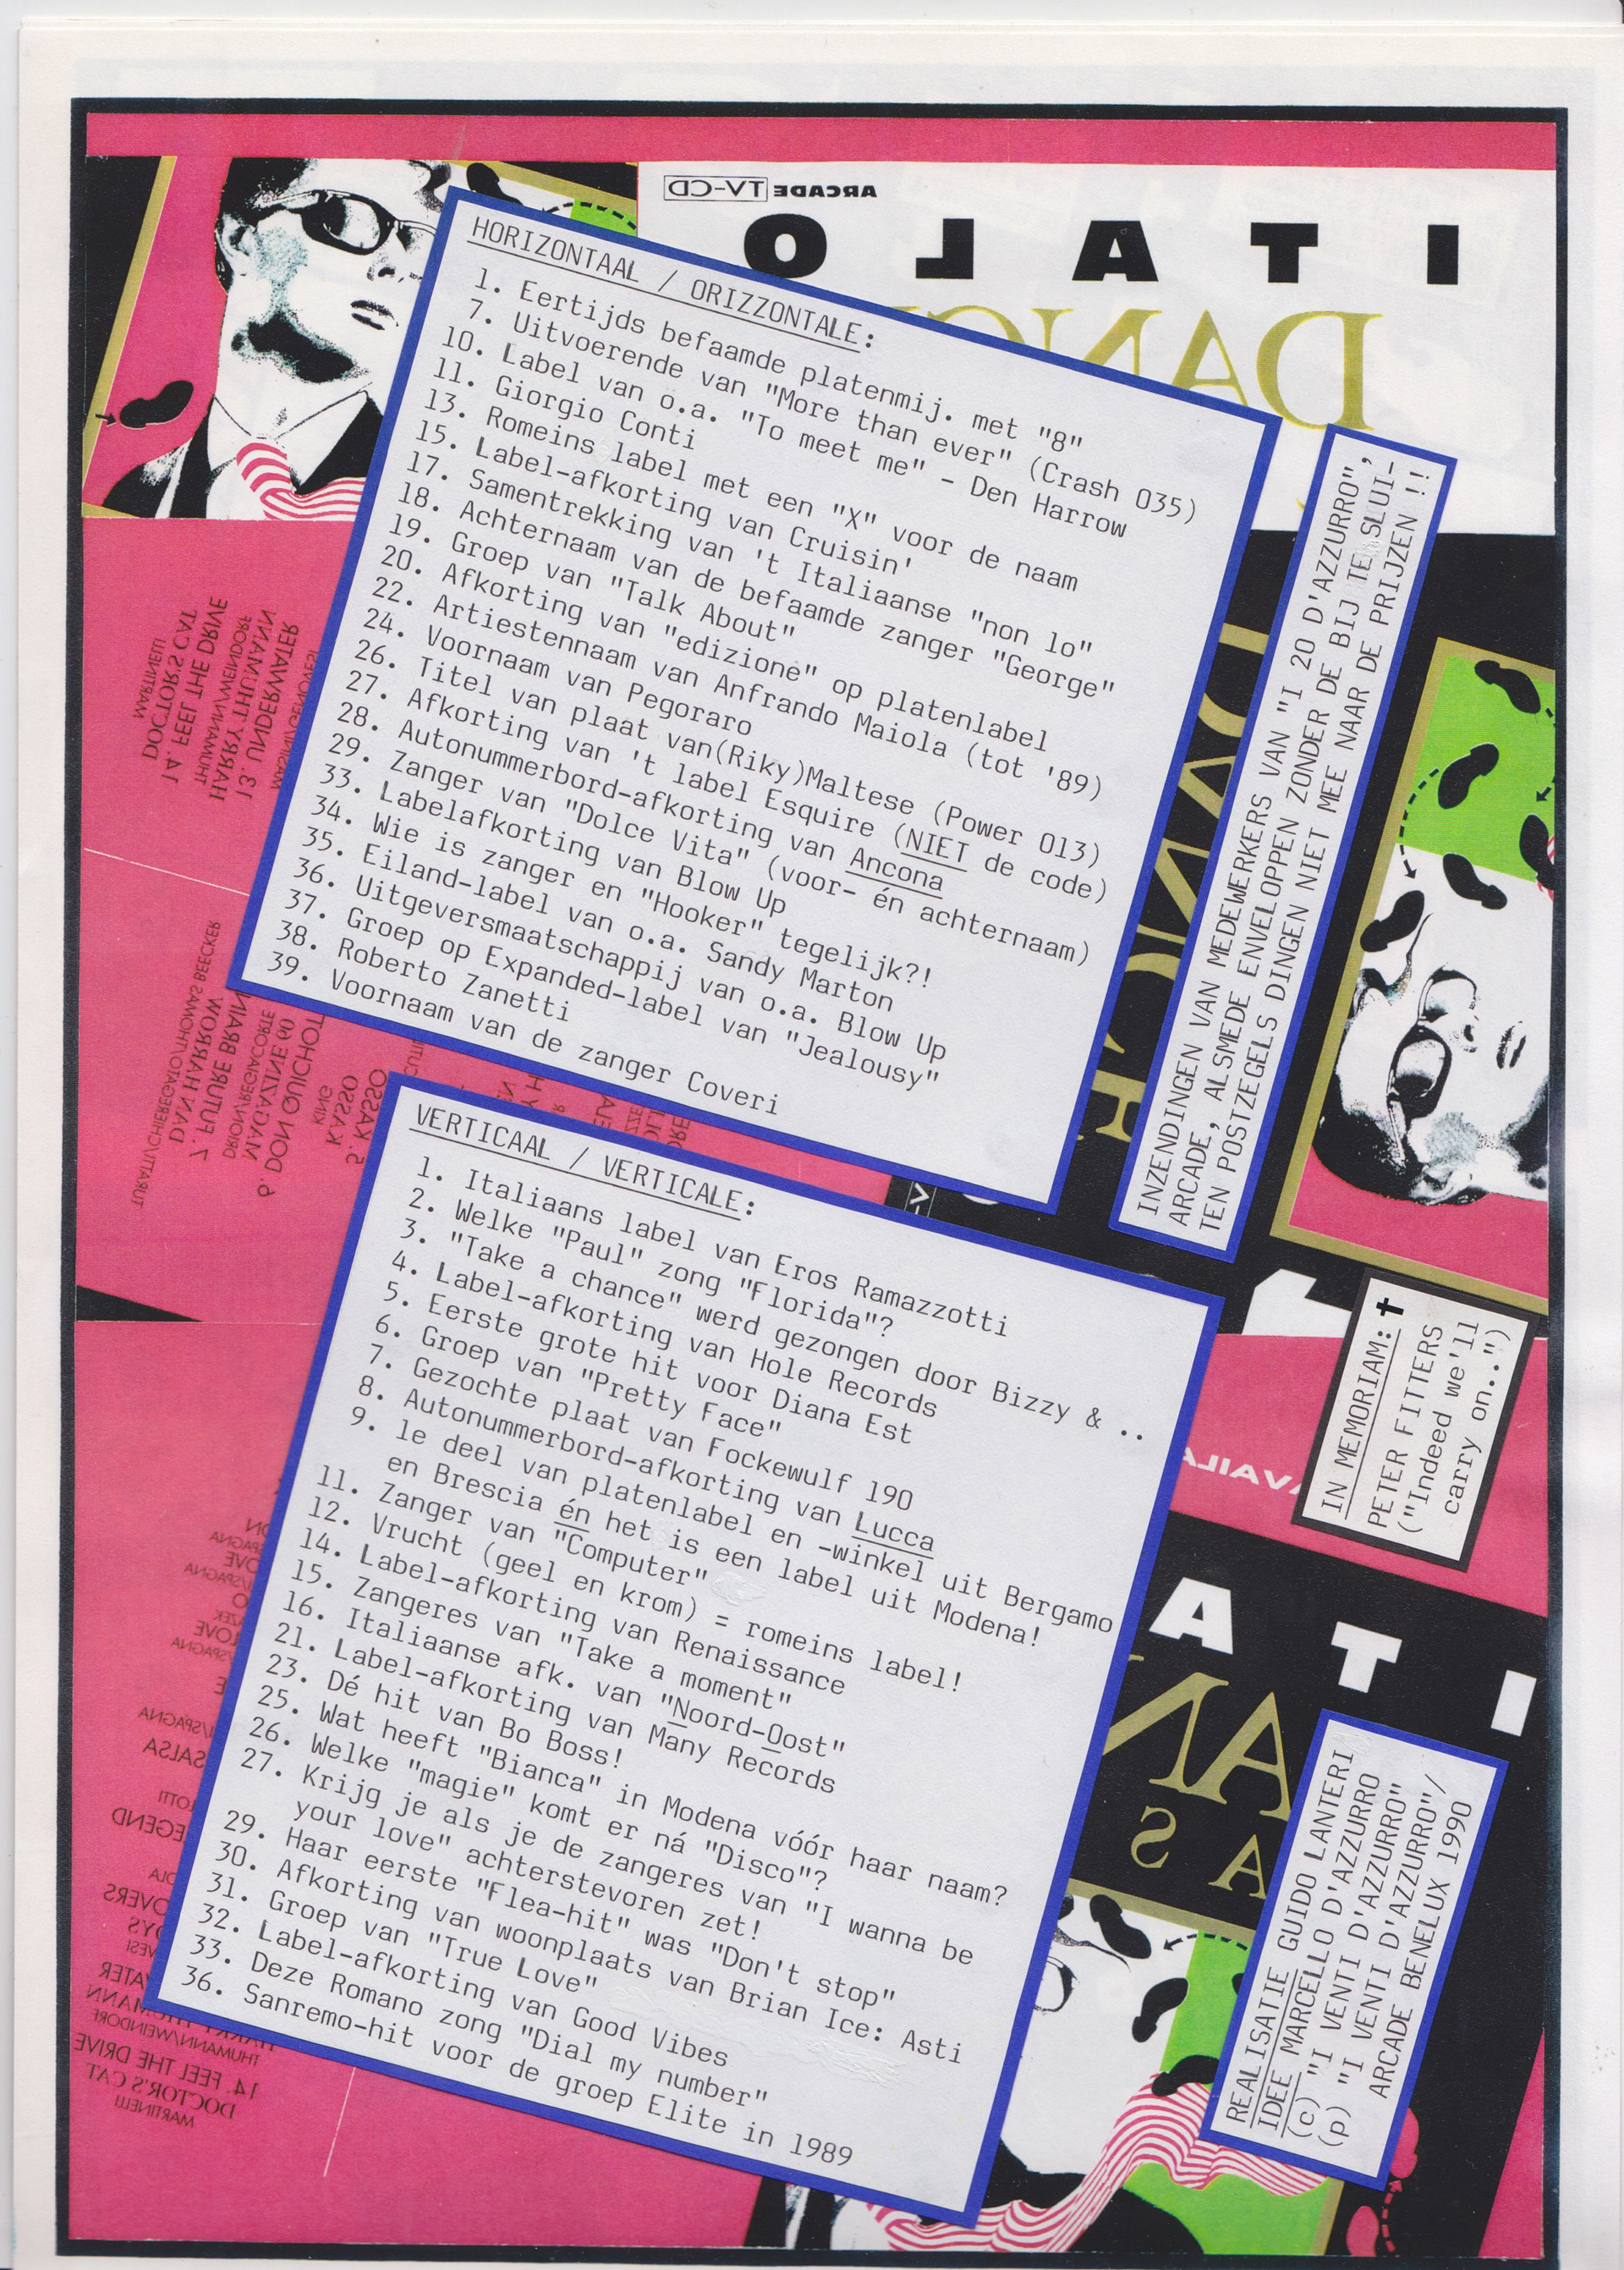 ARCADE TV-CD
ITALO
DANC
HORIZONTAAL / ORIZZONTALE:
1. Eertijds befaamde platenmij. met "8"
7. Uitvoerende van "More than ever" (Crash 035)
10. Label van o.a. "To meet me" - Den Harrow
11. Giorgio Conti
13. Romeins label met een "X" voor de naam
15. Label-afkorting van Cruisin'
17. Samentrekking van 't Italiaanse "non lo"
18. Achternaam van de befaamde zanger "George"
19. Groep van "Talk About"
20. Afkorting van "edizione" op platenlabel
22. Artiestennaam van Anfrando Maiola (tot '89)
24. Voornaam van Pegoraro
26. Titel van plaat van(Riky)Maltese (Power 013)
27. Afkorting van 't label Esquire (NIET de code)
28. Autonummerbord-afkorting van Ancona
29. Zanger van "Dolce Vita" (voor- én achternaam)
33. Labelafkorting van Blow Up
34. Wie is zanger en "Hooker" tegelijk?!
35. Eiland-label van o.a. Sandy Marton
36. Uitgeversmaatschappij van o.a. Blow Up
37. Groep op Expanded-label van "Jealousy"
38. Roberto Zanetti
39. Voornaam van de zanger Coveri
INZENDINGEN VAN MEDEWERKERS VAN "I 20 D'AZZURRO",
ARCADE, ALSMEDE ENVELOPPEN ZONDER DE BIJ TE SLUI-
TEN POSTZEGELS DINGEN NIET MEE NAAR DE PRIJZEN !!
MARTINELLI
DOCTOR'S CAT
14. FEEL THE DRIVE
THUMANN/WEINDORF
HARRY THUMANN
13. UNDERWATER
TURATTI/CHIEREGATO/THOMAS BEECKER
DAN HARROW
7. FUTURE BRAIN
DRION/REGIACORTE
MAGAZINE 60
6. DON QUICHOT
KING
KASSO
5. KASSO
VERTICAAL / VERTICALE:
1. Italiaans label van Eros Ramazzotti
2. Welke "Paul" zong "Florida"?
3. "Take a chance" werd gezongen door Bizzy & ..
4. Label-afkorting van Hole Records
5. Eerste grote hit voor Diana Est
6. Groep van "Pretty Face"
7. Gezochte plaat van Fockewulf 190
8. Autonummerbord-afkorting van Lucca
9. 1e deel van platenlabel en -winkel uit Bergamo
en Brescia én het is een label uit Modena!
11. Zanger van "Computer"
12. Vrucht (geel en krom) = romeins label!
14. Label-afkorting van Renaissance
15. Zangeres van "Take a moment"
16. Italiaanse afk. van "Noord-Oost"
21. Label-afkorting van Many Records
23. Dé hit van Bo Boss!
25. Wat heeft "Bianca" in Modena vóór haar naam?
26. Welke "magie" komt er ná "Disco"?
27. Krijg je als je de zangeres van "I wanna be
your love" achterstevoren zet!
29. Haar eerste "Flea-hit" was "Don't stop"
30. Afkorting van woonplaats van Brian Ice: Asti
31. Groep van "True Love"
32. Label-afkorting van Good Vibes
33. Deze Romano zong "Dial my number"
36. Sanremo-hit voor de groep Elite in 1989
IN MEMORIAM: †
PETER FITTERS
("Indeed we'll
carry on..")
ITA
AN
AS
REALISATIE GUIDO LANTERI
IDEE MARCELLO D'AZZURRO
(c) "I VENTI D'AZZURRO"
(p) "I VENTI D'AZZURRO"/
ARCADE BENELUX 1990
SALSA
THUMANN/WEINDORF
14. FEEL THE DRIVE
DOCTOR'S CAT
MARTINELLI